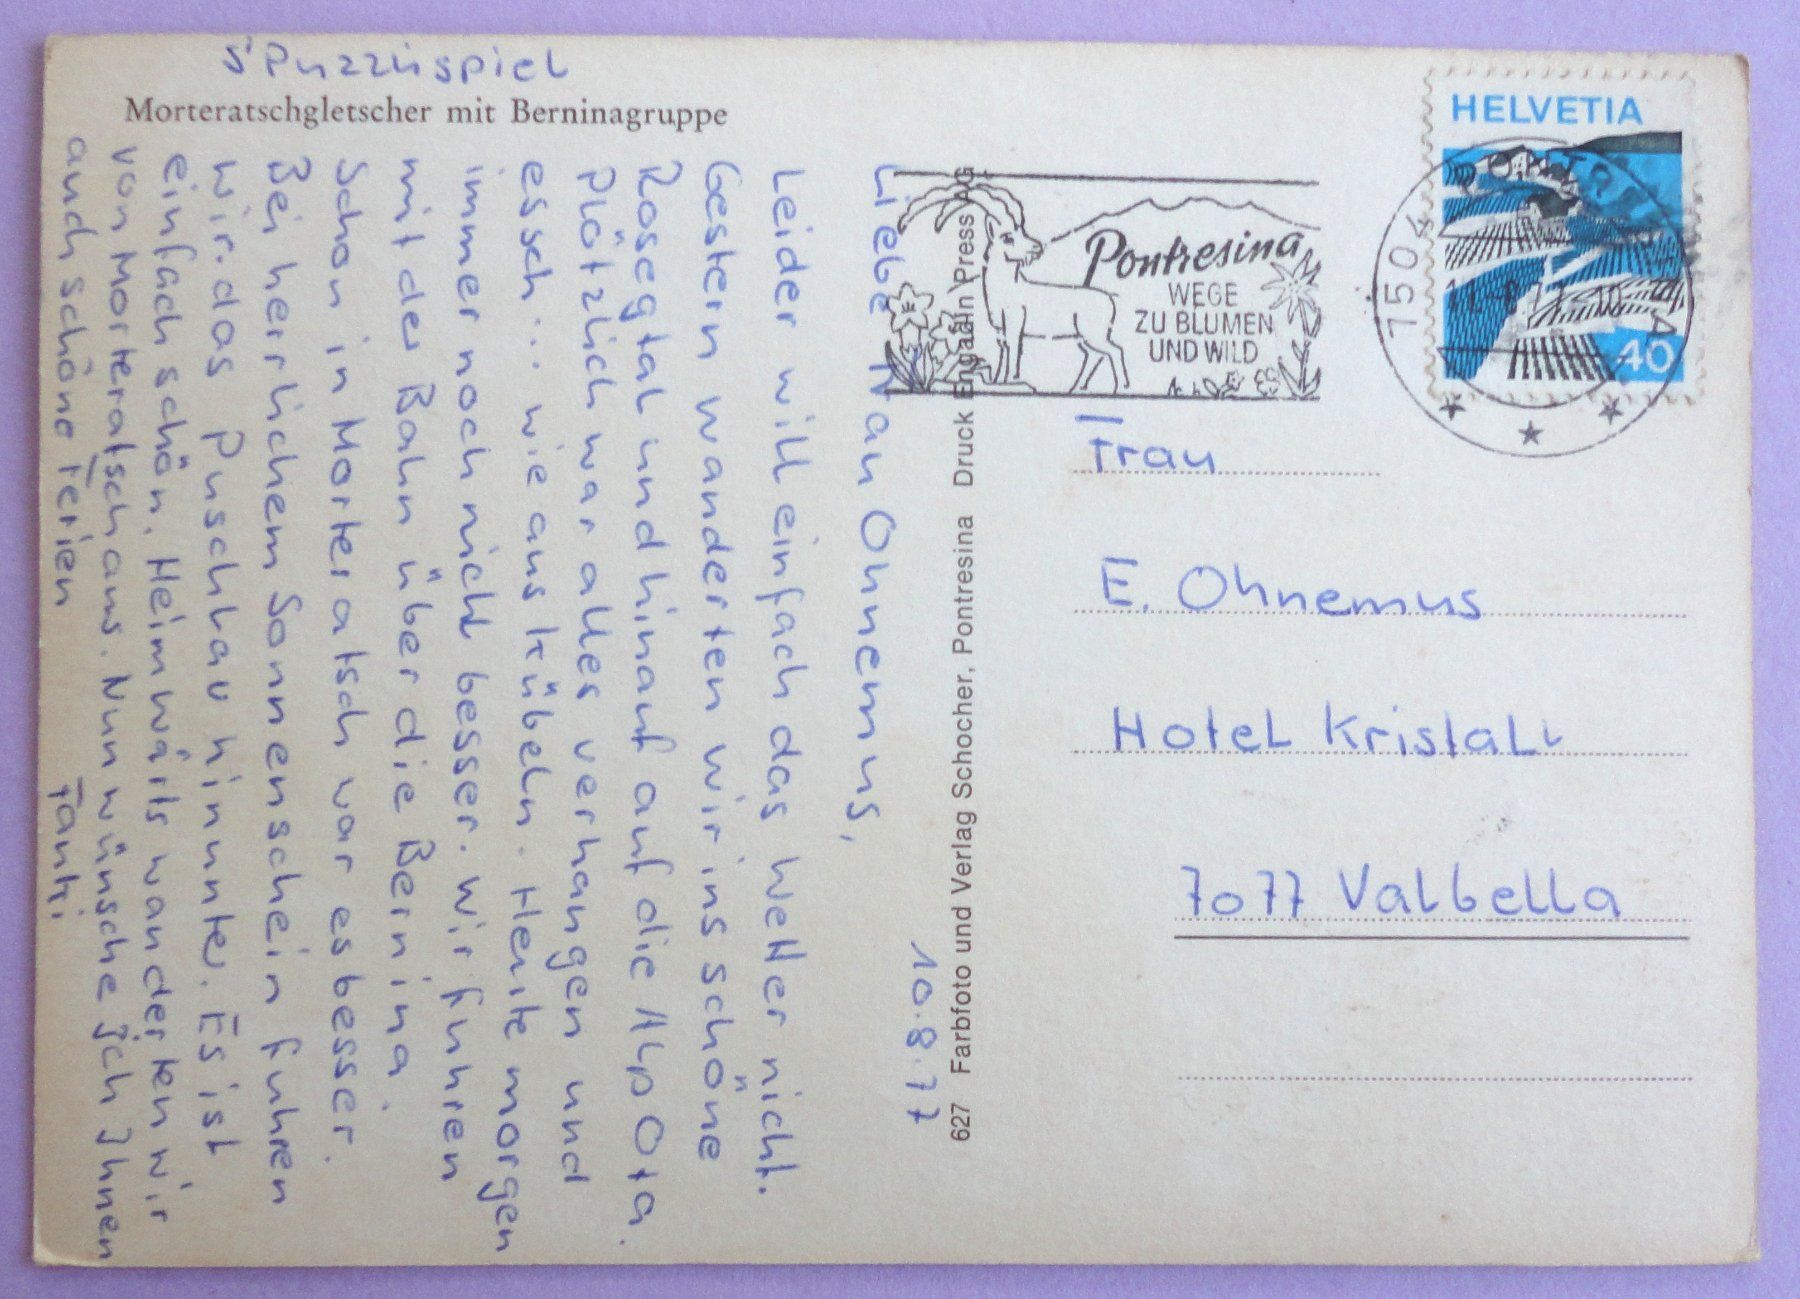 s'Puzzlispiel
Morteratschgletscher mit Berninagruppe
10.8.77
Liebe Frau Ohnemus,
Leider will einfach das Wetter nicht.
Gestern wanderten wir ins schöne
Rosegtal und hinauf auf die Alp Ota.
Plötzlich war alles verhangen und
es sch... wie aus Kübeln. Heute morgen
immer noch nicht besser. Wir fuhren
mit der Bahn über die Bernina
Schon in Morteratsch war es besser.
Bei herrlichem Sonnenschein fuhren
wir das Puschlav hinunter. Es ist
einfach schön. Heimwärts wanderten wir
von Morteratsch aus. Nun wünsche ich Ihnen
auch schöne Ferien
627 Farbfoto und Verlag Schocher, Pontresina Druck Engadin Press AG
Pontresina
WEGE
ZU BLUMEN
UND WILD
7504 PONTRESINA
HELVETIA
40
Frau
E. Ohnemus
Hotel Kristall
7077 Valbella